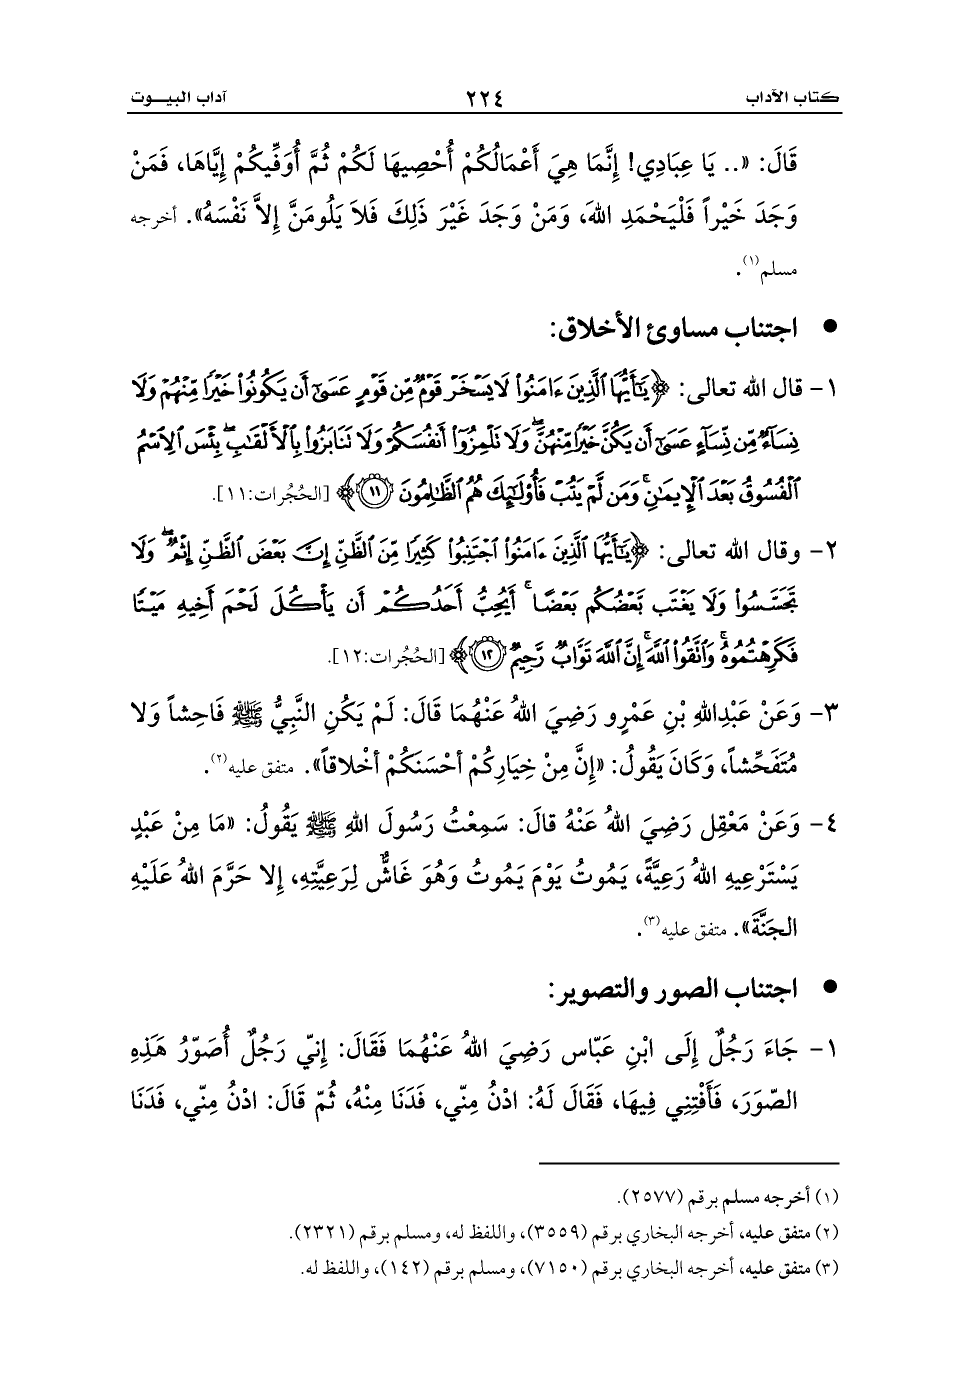 كتاب الآداب ٢٢٤ آداب البيـــوت
قَالَ: «.. يَا عِبَادِي! إِنَّمَا هِيَ أَعْمَالُكُمْ أُحْصِيهَا لَكُمْ ثُمَّ أُوَفِّيكُمْ إيَّاهَا، فَمَنْ
وَجَدَ خَيْراً فَلْيَحْمَدِ اللهَ، وَمَنْ وَجَدَ غَيْرَ ذَلِكَ فَلاَ يَلُومَنَّ إلاَّ نَفْسَهُ». أخرجه
مسلم(١).
● اجتناب مساوئ الأخلاق:
١- قال الله تعالى: ﴿يَٰٓأَيُّهَا ٱلَّذِينَ ءَامَنُواْ لَا يَسۡخَرۡ قَوۡمٌ مِّن قَوۡمٍ عَسَىٰٓ أَن يَكُونُواْ خَيۡرٗا مِّنۡهُمۡ وَلَا
نِسَآءٌ مِّن نِّسَآءٍ عَسَىٰٓ أَن يَكُنَّ خَيۡرٗا مِّنۡهُنَّۖ وَلَا تَلۡمِزُوٓاْ أَنفُسَكُمۡ وَلَا تَنَابَزُواْ بِٱلۡأَلۡقَٰبِۖ بِئۡسَ ٱلِٱسۡمُ
ٱلۡفُسُوقُ بَعۡدَ ٱلۡإِيمَٰنِۚ وَمَن لَّمۡ يَتُبۡ فَأُوْلَٰٓئِكَ هُمُ ٱلظَّٰلِمُونَ ١١﴾ [الحُجُرات:١١].
٢- وقال الله تعالى: ﴿يَٰٓأَيُّهَا ٱلَّذِينَ ءَامَنُواْ ٱجۡتَنِبُواْ كَثِيرٗا مِّنَ ٱلظَّنِّ إِنَّ بَعۡضَ ٱلظَّنِّ إِثۡمٞۖ وَلَا
تَجَسَّسُواْ وَلَا يَغۡتَب بَّعۡضُكُم بَعۡضًاۚ أَيُحِبُّ أَحَدُكُمۡ أَن يَأۡكُلَ لَحۡمَ أَخِيهِ مَيۡتٗا
فَكَرِهۡتُمُوهُۚ وَٱتَّقُواْ ٱللَّهَۚ إِنَّ ٱللَّهَ تَوَّابٞ رَّحِيمٞ ١٢﴾ [الحُجُرات:١٢].
٣- وَعَنْ عَبْدِاللهِ بْنِ عَمْرٍو رَضِيَ اللهُ عَنْهُمَا قَالَ: لَمْ يَكُنِ النَّبِيُّ ﷺ فَاحِشاً وَلا
مُتَفَحِّشاً، وَكَانَ يَقُولُ: «إِنَّ مِنْ خِيَارِكُمْ أحْسَنَكُمْ أخْلاقاً». متفق عليه(٢).
٤- وَعَنْ مَعْقِل رَضِيَ اللهُ عَنْهُ قالَ: سَمِعْتُ رَسُولَ اللهِ ﷺ يَقُولُ: «مَا مِنْ عَبْدٍ
يَسْتَرْعِيهِ اللهُ رَعِيَّةً، يَمُوتُ يَوْمَ يَمُوتُ وَهُوَ غَاشٌّ لِرَعِيَّتِهِ، إلا حَرَّمَ اللهُ عَلَيْهِ
الجَنَّةَ». متفق عليه(٣).
● اجتناب الصور والتصوير:
١- جَاءَ رَجُلٌ إِلَى ابْنِ عَبّاس رَضِيَ اللهُ عَنْهُمَا فَقَالَ: إِنّي رَجُلٌ أُصَوّرُ هَذِهِ
الصّوَرَ، فَأَفْتِنِي فِيهَا، فَقَالَ لَهُ: ادْنُ مِنّي، فَدَنَا مِنْهُ، ثُمّ قَالَ: ادْنُ مِنّي، فَدَنَا
(١) أخرجه مسلم برقم (٢٥٧٧).
(٢) متفق عليه، أخرجه البخاري برقم (٣٥٥٩)، واللفظ له، ومسلم برقم (٢٣٢١).
(٣) متفق عليه، أخرجه البخاري برقم (٧١٥٠)، ومسلم برقم (١٤٢)، واللفظ له.